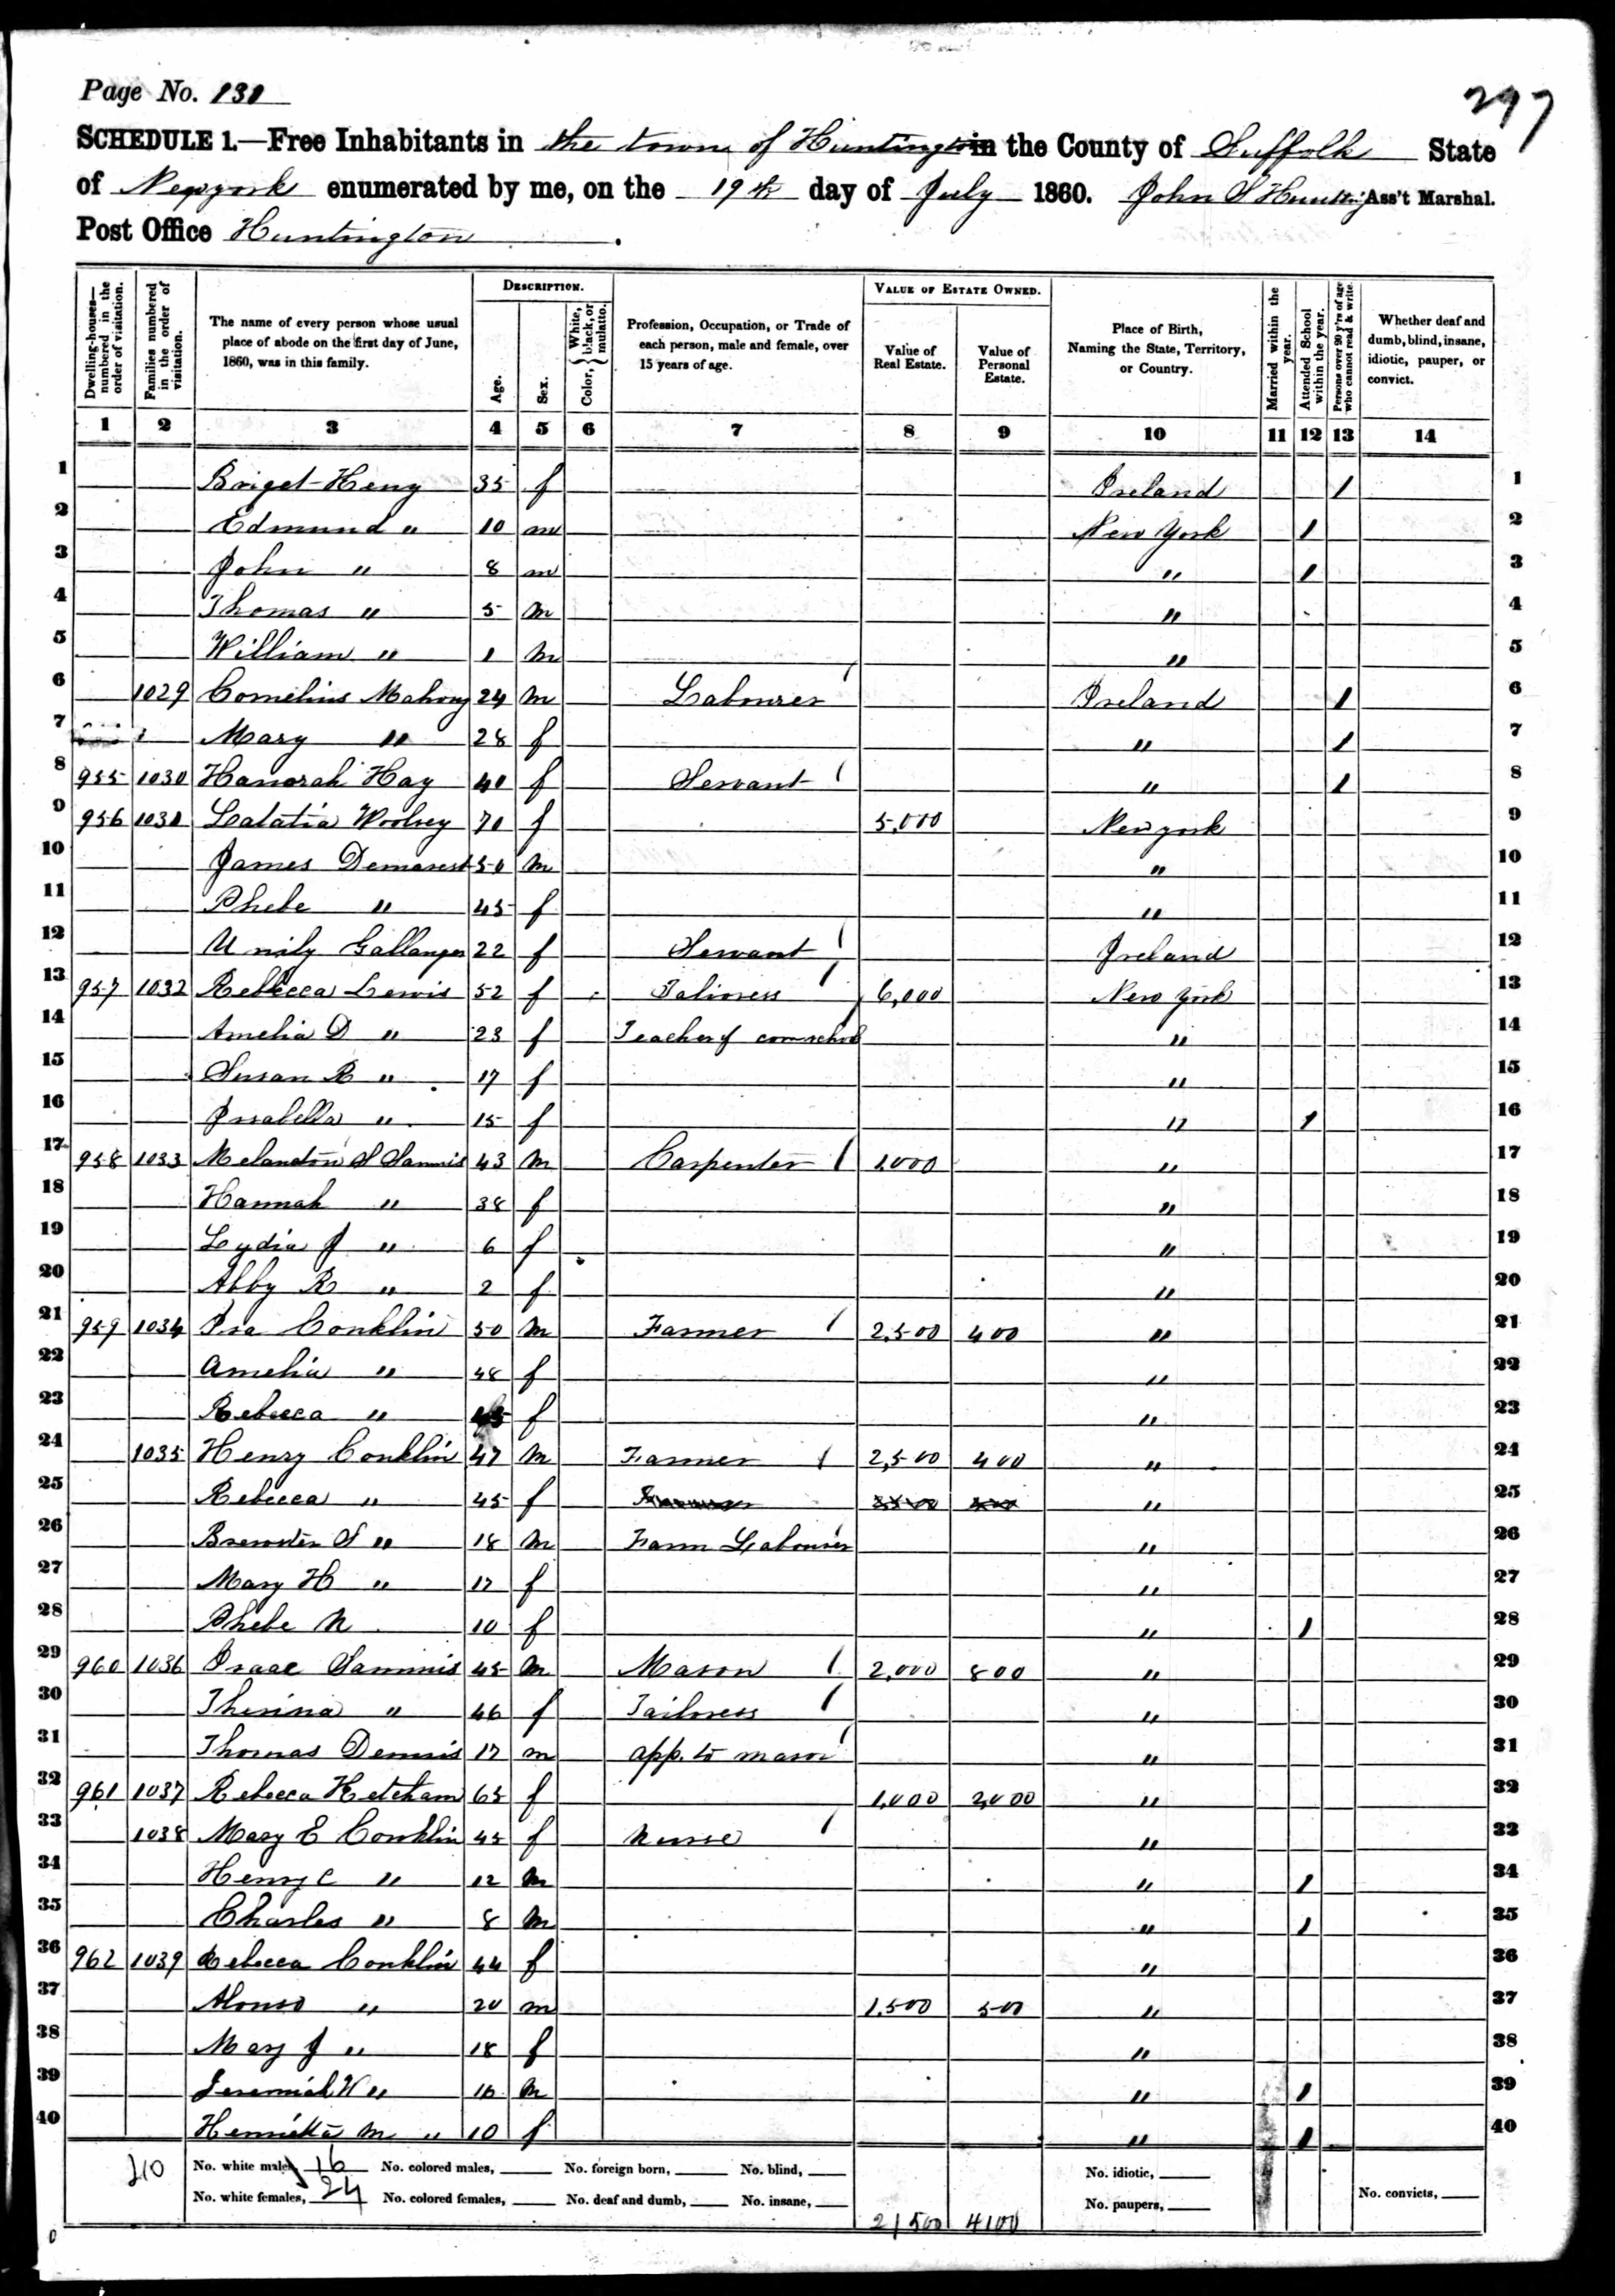 Page No. 131
297
SCHEDULE 1.—Free Inhabitants in the town of Huntington in the County of Suffolk State
of New york enumerated by me, on the 19th day of July 1860. John S Ass't Marshal.
Post Office Huntington.
Dwelling-houses—numbered in the order of visitation.
Families numbered in the order of visitation.
The name of every person whose usual place of abode on the first day of June, 1860, was in this family.
DESCRIPTION.
Age.
Sex.
Color, { White, black, or mulatto.
Profession, Occupation, or Trade of each person, male and female, over 15 years of age.
VALUE OF ESTATE OWNED.
Value of Real Estate.
Value of Personal Estate.
Place of Birth, Naming the State, Territory, or Country.
Married within the year.
Attended School within the year.
Persons over 20 y'rs of age who cannot read & write.
Whether deaf and dumb, blind, insane, idiotic, pauper, or convict.
1 2 3 4 5 6 7 8 9 10 11 12 13 14
1 Briget Heny 35 f Ireland 1 1
2 Edmund " 10 m New York 1 2
3 John " 8 m " 1 3
4 Thomas " 5 m " 4
5 William " 1 m " 5
6 1029 Cornelius Mahony 24 m Labourer Ireland 1 6
7 Mary " 28 f " 1 7
8 955 1030 Hanorah Hay 40 f Servant " 1 8
9 956 1031 Latatia Woolsey 70 f 5,000 New york 9
10 James Demarest 50 m " 10
11 Phebe " 45 f " 11
12 Gallanger 22 f Servant Ireland 12
13 957 1032 Rebecca Lewis 52 f Taliness 6,000 New York 13
14 Amelia D " 23 f Teacher of com school " 14
15 Susan R " 17 f " 15
16 Issabella " 15 f " 1 16
17 958 1033 Melancton S Sammis 43 m Carpenter 1000 " 17
18 Hannah " 38 f " 18
19 Lydia J " 6 f " 19
20 Abby R " 2 f " 20
21 959 1034 Ira Conklin 50 m Farmer 2,500 400 " 21
22 Amelia " 48 f " 22
23 Rebecca " f " 23
24 1035 Henry Conklin 47 m Farmer 2,500 400 " 24
25 Rebecca " 45 f " 25
26 Brewster S " 18 m Farm Labourer " 26
27 Mary H " 17 f " 27
28 Phebe N 10 f " 1 28
29 960 1036 Isaac Sammis 45 m Mason 2,000 800 " 29
30 " 46 f Tailoress " 30
31 Thomas Dennis 17 m app. to mason " 31
32 961 1037 Rebecca Ketcham 65 f 1,000 2,000 " 32
33 1038 Mary E Conklin 45 f nurse " 33
34 Henry C " 12 m " 1 34
35 Charles " 8 m " 1 35
36 962 1039 Rebecca Conklin 44 f " 36
37 Alonso " 20 m 1,500 500 " 37
38 Mary J " 18 f " 38
39 Jeremiah W " 16 m " 1 39
40 Henrietta M " 10 f " 1 40
No. white males, 16 No. colored males, No. foreign born, No. blind, No. idiotic,
No. white females, 24 No. colored females, No. deaf and dumb, No. insane, No. paupers, No. convicts,
21500 4100